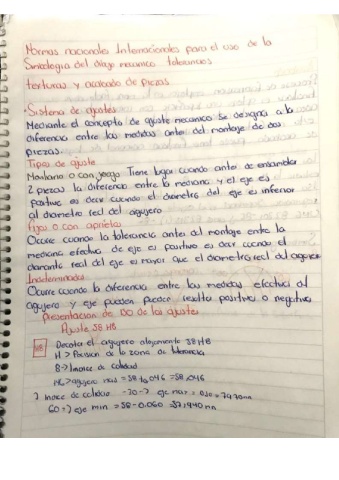 Normas nacionales Internacionales para el uso de la
Simbologia del dibujo mecanico tolerancias
texturas y acabado de piezas.
• Sistema de ajustes
Mediante el concepto de ajuste mecanico se designa a la
diferencia entre las medidas antes del montaje de dos
piezas.
Tipos de ajuste
o con juego Tiene lugar cuando antes de ensamblar
2 piezas la diferencia entre la mediana y el eje es
positiva es decir cuando el diametro del eje es inferior
al diametro real del agujero
Fijo o con aprietos
Ocurre cuando la tolerancia antes del montaje entre la
mediana efectiva de eje es positiva es decir cuando el
diametro real del eje es mayor que el diametro real del agujero
Indeterminados
Ocurre cuando la diferencia entre las medidas efectiva del
agujero y eje pueden resulta positiva o negativa
Presentacion de los ajustes
Ajuste 58 H8
H8 agujero alojamiento 58 H8
H > Posicion de la zona de tolerancia
8 -> Indice de calidad
agujero max = 58 + 0,046 = 58,046
7 Indice de calidad -30 -> eje max
60 -> eje min = 58 - 0.060 = 57,940 mm